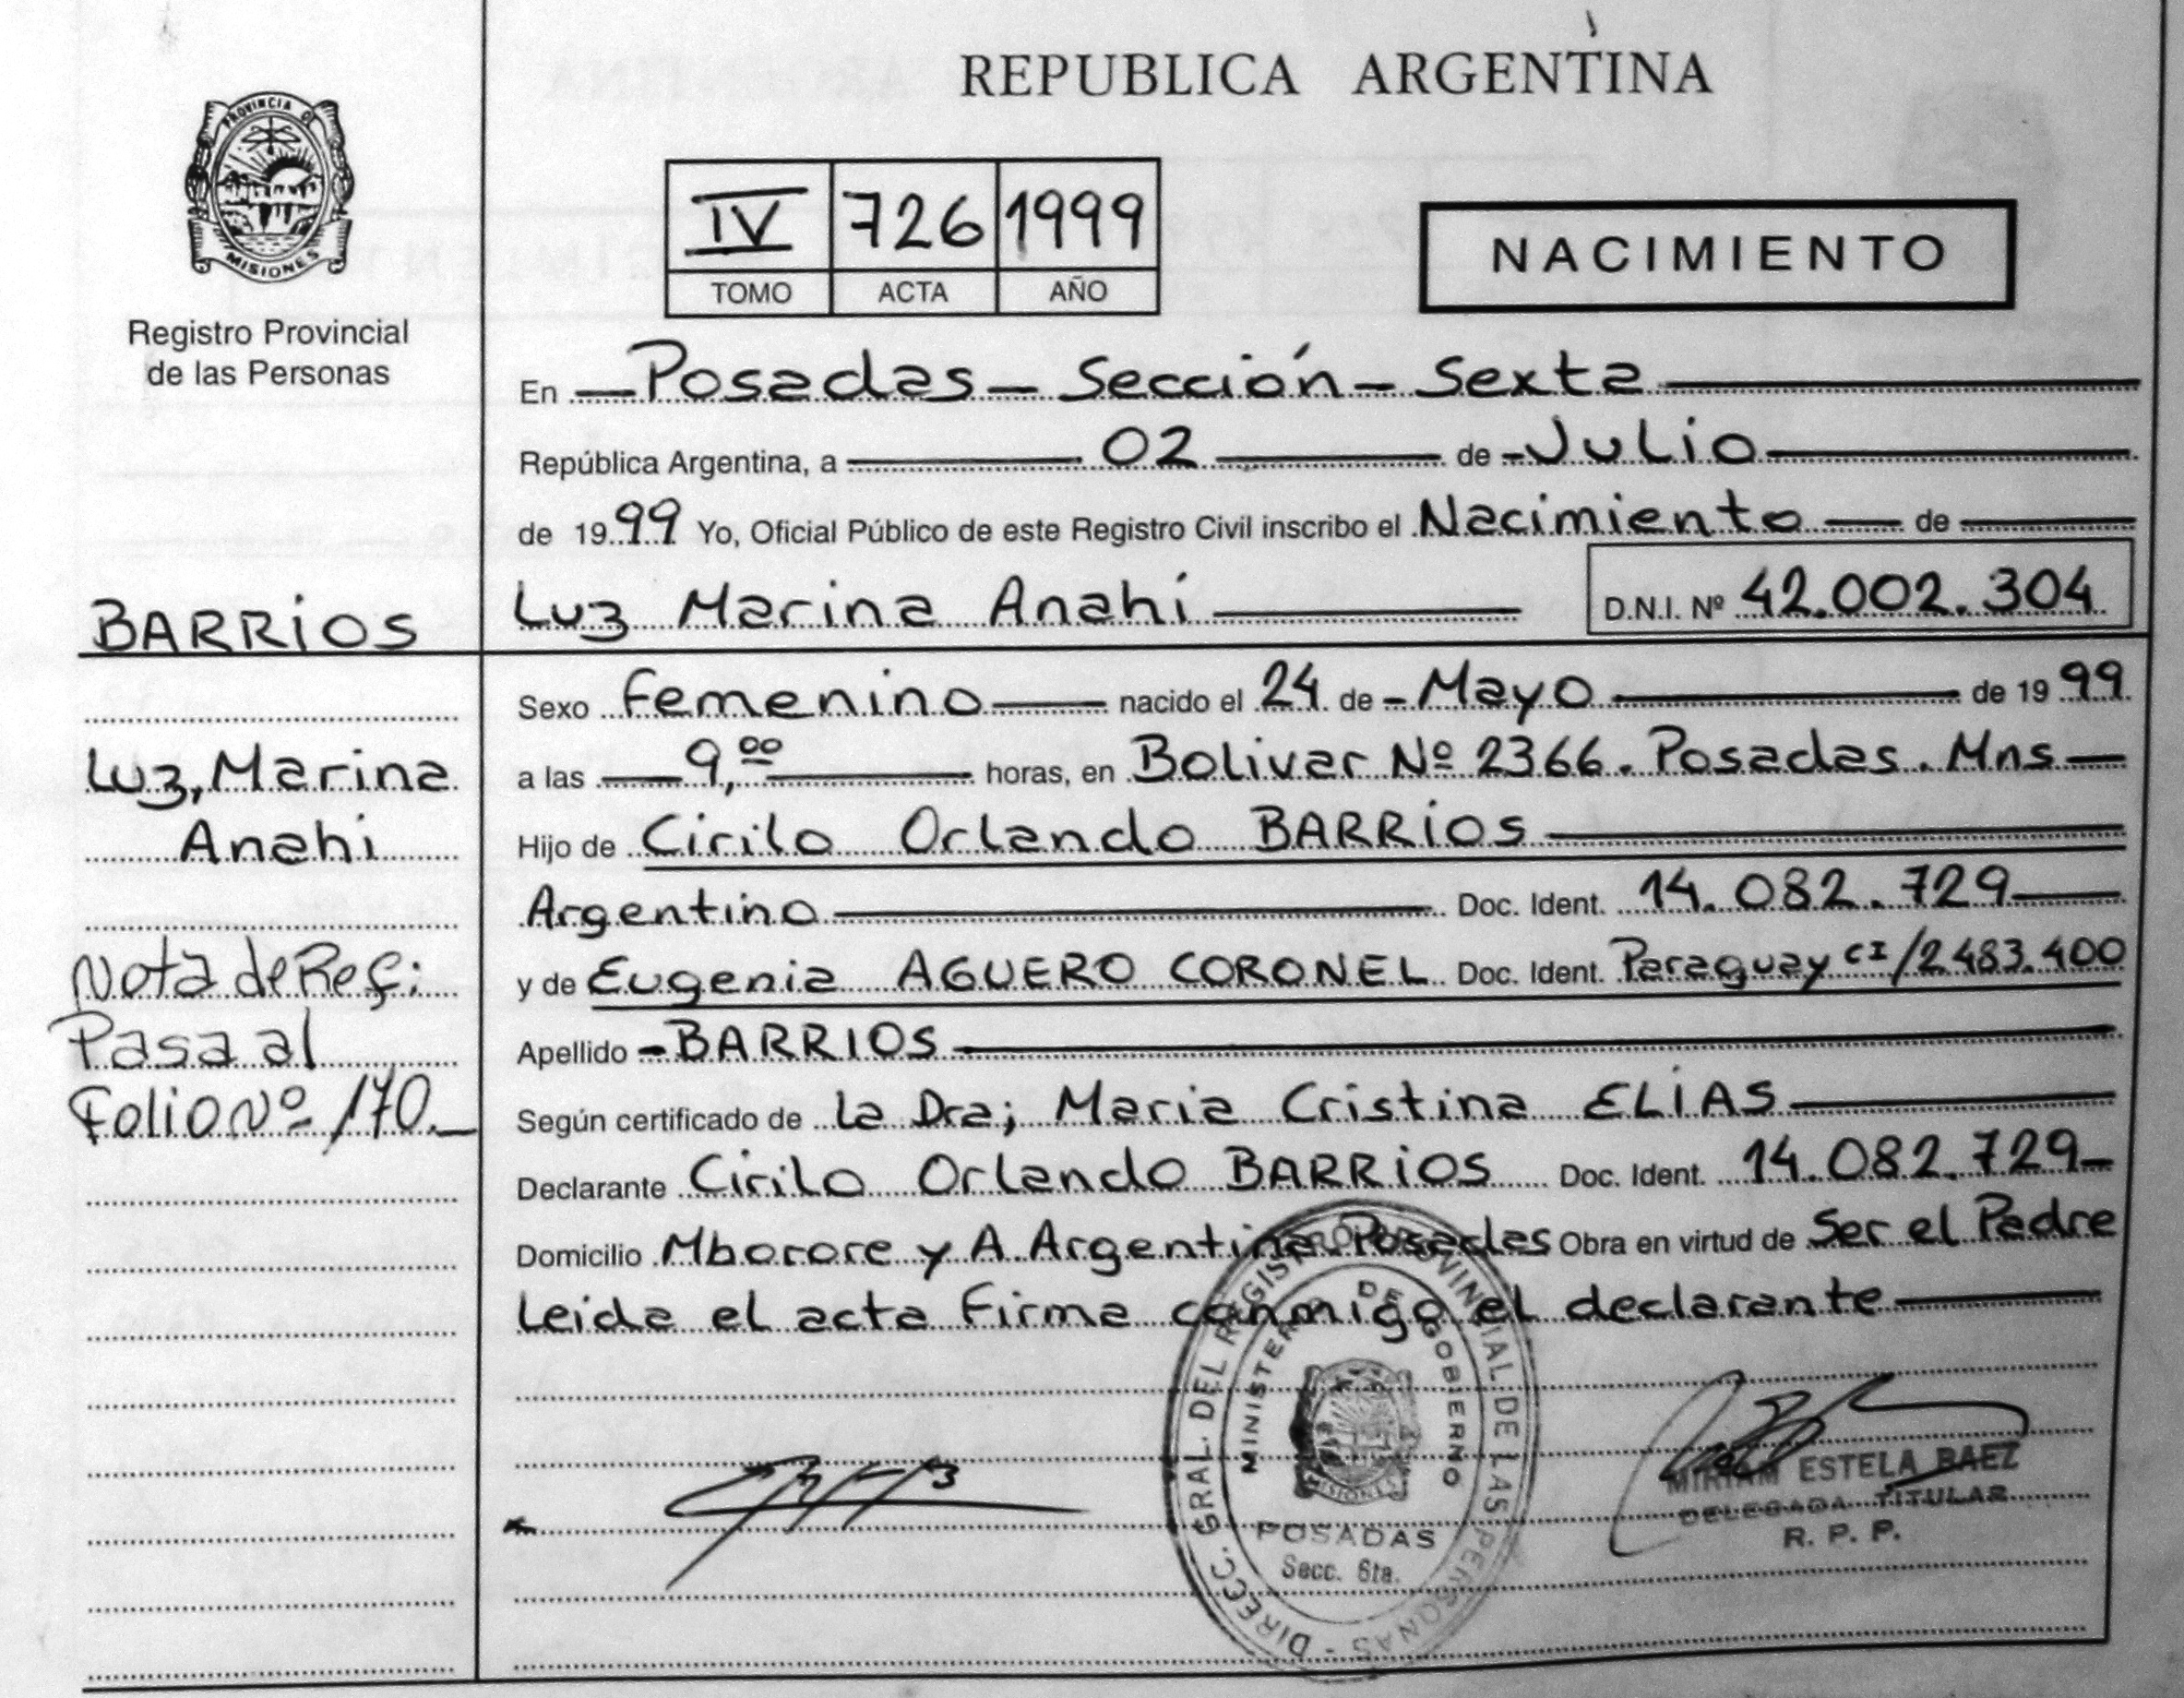 REPUBLICA ARGENTINA
PROVINCIA D
MISIONES
Registro Provincial
de las Personas
IV 726 1999
TOMO ACTA AÑO
NACIMIENTO
En Posadas - Sección - Sexta
República Argentina, a 02 de Julio
de 1999 Yo, Oficial Público de este Registro Civil inscribo el Nacimiento de
BARRIOS
Luz Marina Anahí
D.N.I. Nº 42.002.304
Sexo Femenino nacido el 24 de Mayo de 1999
a las 9,00 horas, en Bolivar Nº 2366. Posadas. Mns
Hijo de Cirilo Orlando BARRIOS
Argentino Doc. Ident. 14.082.729
y de Eugenia AGUERO CORONEL Doc. Ident. Paraguay CI/2483.400
Apellido BARRIOS
Según certificado de la Dra; Maria Cristina ELIAS
Declarante Cirilo Orlando BARRIOS Doc. Ident. 14.082.729
Domicilio Mborore y A. Argentina. Posadas Obra en virtud de Ser el Padre
Leida el acta Firma conmigo el declarante
Luz, Marina
Anahi
Nota de Ref:
Pasa al
Folio Nº 170.
DIREC. GRAL. DEL REGISTRO PROVINCIAL DE LAS PERSONAS
MINISTERIO DE GOBIERNO
MISIONES
POSADAS
Secc. 6ta.
MIRIAM ESTELA BAEZ
DELEGADA TITULAR
R. P. P.